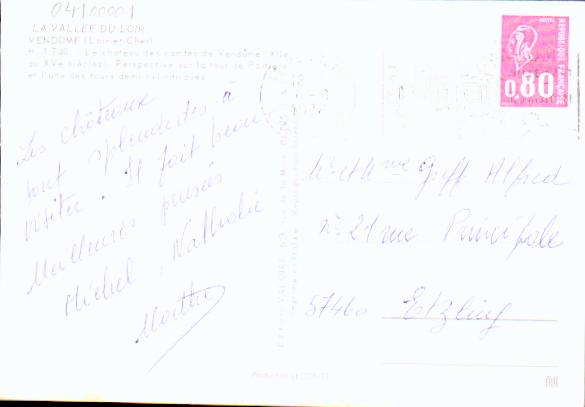 04/00001
LA VALLÉE DU LOIR
VENDOME (Loir-et-Cher)
Le château des comtes de Vendôme (XIIe
au XVe siècles). Perspective sur la tour de Poitiers
et l'une des tours demi-cylindriques
REPUBLIQUE FRANÇAISE
0,80
Les châteaux
sont splendides à
visiter. Il fait beau
Meilleures pensées
Michel, Nathalie
Marthe
Mr et Mme Greff Alfred
n° 21 rue Principale
57460 Etzling